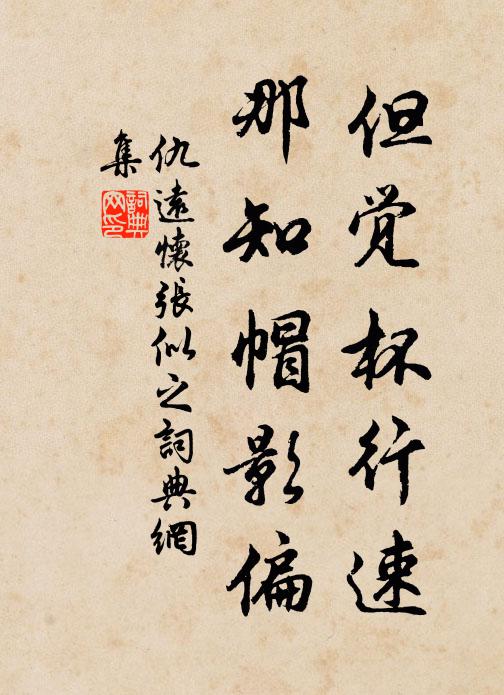 但觉杯行速
那知帽影偏
仇遠懷張似之詞典網
集
詞典
网印